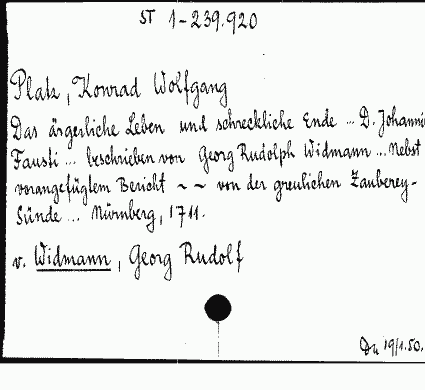 ST 1-239.920
Platz, Konrad Wolfgang
Das ärgerliche Leben und schreckliche Ende ... D. Johannis
Fausti ... beschrieben von Georg Rudolph Widmann ... Nebst
vorangefügtem Bericht ~ ~ von der greulichen Zauberey-
Sünde ... Nürnberg, 1711.
v. Widmann, Georg Rudolf
Du 19/1.50.